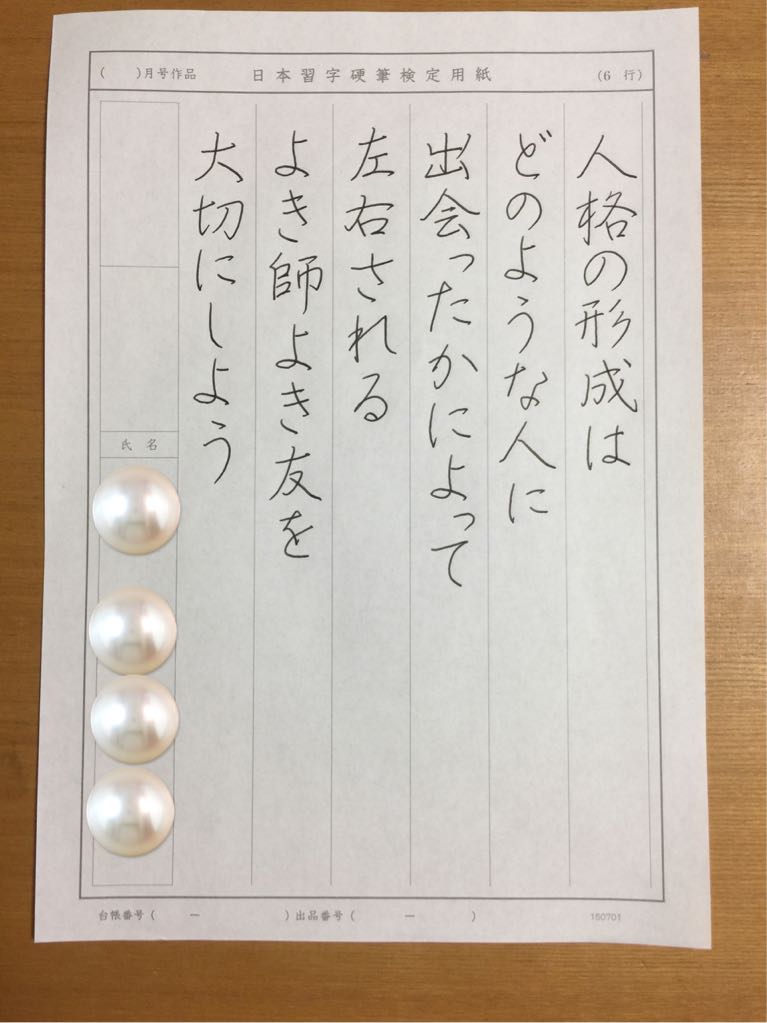 (　　)月号作品　日本習字硬筆検定用紙　(6 行)
人格の形成は
どのような人に
出会ったかによって
左右される
よき師よき友を
大切にしよう
氏名
台帳番号(　　ー　　)出品番号(　　ー　　)　150701